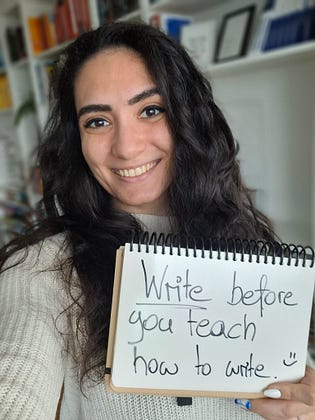 Write before
you teach
how to write. :)